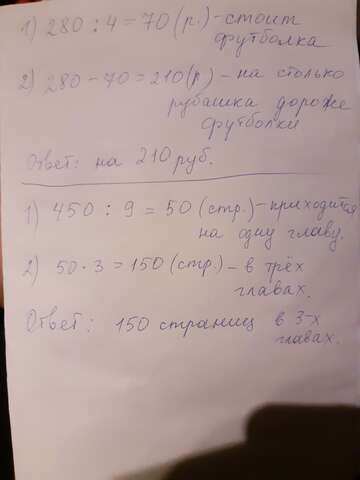 1) 280 : 4 = 70 (р.) - стоит
футболка
2) 280 - 70 = 210 (р) - на столько
рубашка дороже
футболки
Ответ: на 210 руб.
1) 450 : 9 = 50 (стр.) - приходится
на одну главу.
2) 50 · 3 = 150 (стр.) - в трёх
главах.
Ответ: 150 страниц в 3-х
главах.